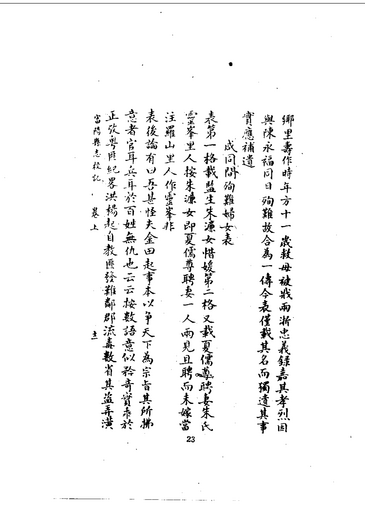 鄉里壽作時年方十一歲救母被戕兩浙忠義錄嘉其孝烈因
與陳永福同日殉難故合為一傳今表僅載其名而獨遺其事
實應補遺
成同間殉難婦女表
表第一格載監生朱濂女惜媛第二格又載夏儒尊聘妻朱氏
靈峯里人按朱濂女即夏儒尊聘妻一人兩見且聘而未嫁當
注羅山里人作靈峯非
表後論有曰吾甚怪夫金田起事本以爭天下為宗旨其所揚
意者官耳兵耳於百姓無仇也云云按數語意似矜奇實㐲於
正攷粵匪紀畧洪楊起自教匪發難鄰郡流毒數省其盜弄潢
富陽縣志校記 卷上 十一
23